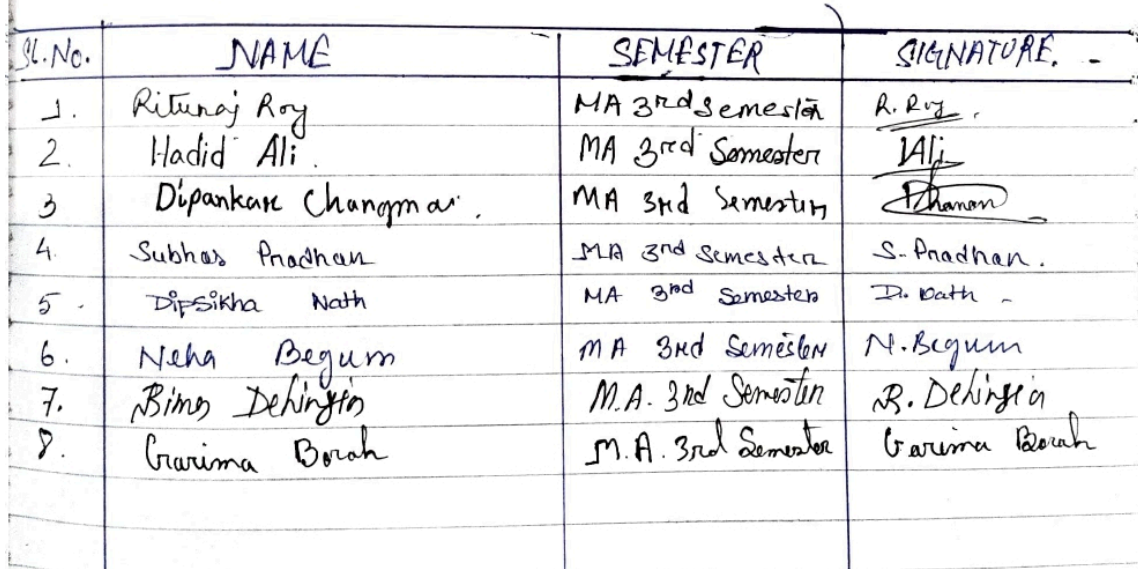 Sl. No. NAME SEMESTER SIGNATURE.
1. Rituraj Roy MA 3rd Semester R. Roy.
2. Hadid Ali. MA 3rd Semester HAli
3 Dipankar Changmai. MA 3rd Semester
4. Subhas Pradhan MA 3rd Semester S. Pradhan.
5. Dipsikha Nath MA 3rd Semester D. Nath
6. Neha Begum MA 3rd Semester N. Begum
7. Bimes Dehingia M.A. 3rd Semester B. Dehingia
8. Garima Borah M.A. 3rd Semester Garima Borah